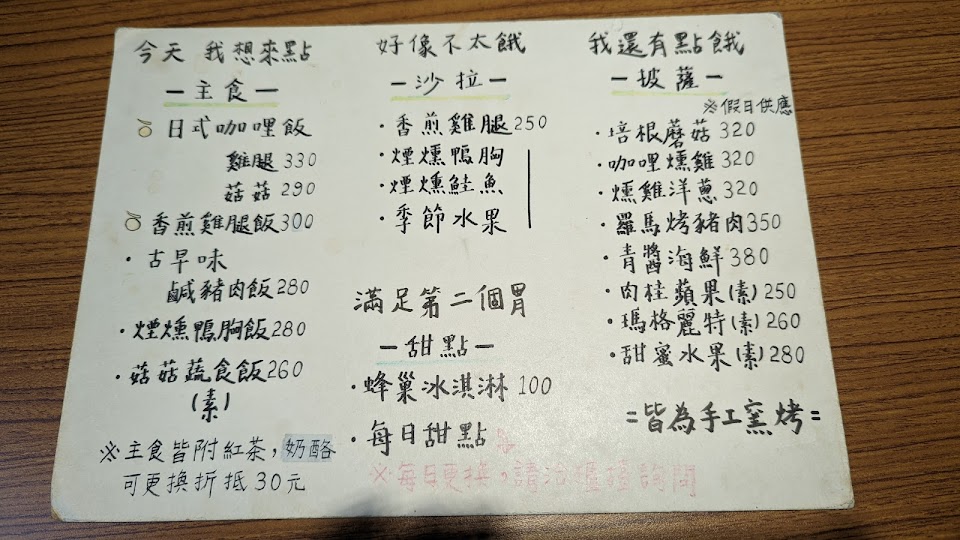 今天 我想來點
－主食－
日式咖哩飯
雞腿 330
菇菇 290
香煎雞腿飯300
・古早味
鹹豬肉飯280
・煙燻鴨胸飯280
・菇菇蔬食飯260
(素)
※主食皆附紅茶，奶酪
可更換折抵30元
好像不太餓
－沙拉－
・香煎雞腿250
・煙燻鴨胸
・煙燻鮭魚
・季節水果
滿足第二個胃
－甜點－
・蜂巢冰淇淋 100
・每日甜點
※每日更換，請洽櫃檯詢問
我還有點餓
－披薩－
※假日供應
・培根蘑菇 320
・咖哩燻雞 320
・燻雞洋蔥 320
・羅馬烤豬肉350
・青醬海鮮 380
・肉桂蘋果(素)250
・瑪格麗特(素)260
・甜蜜水果(素)280
=皆為手工窯烤=